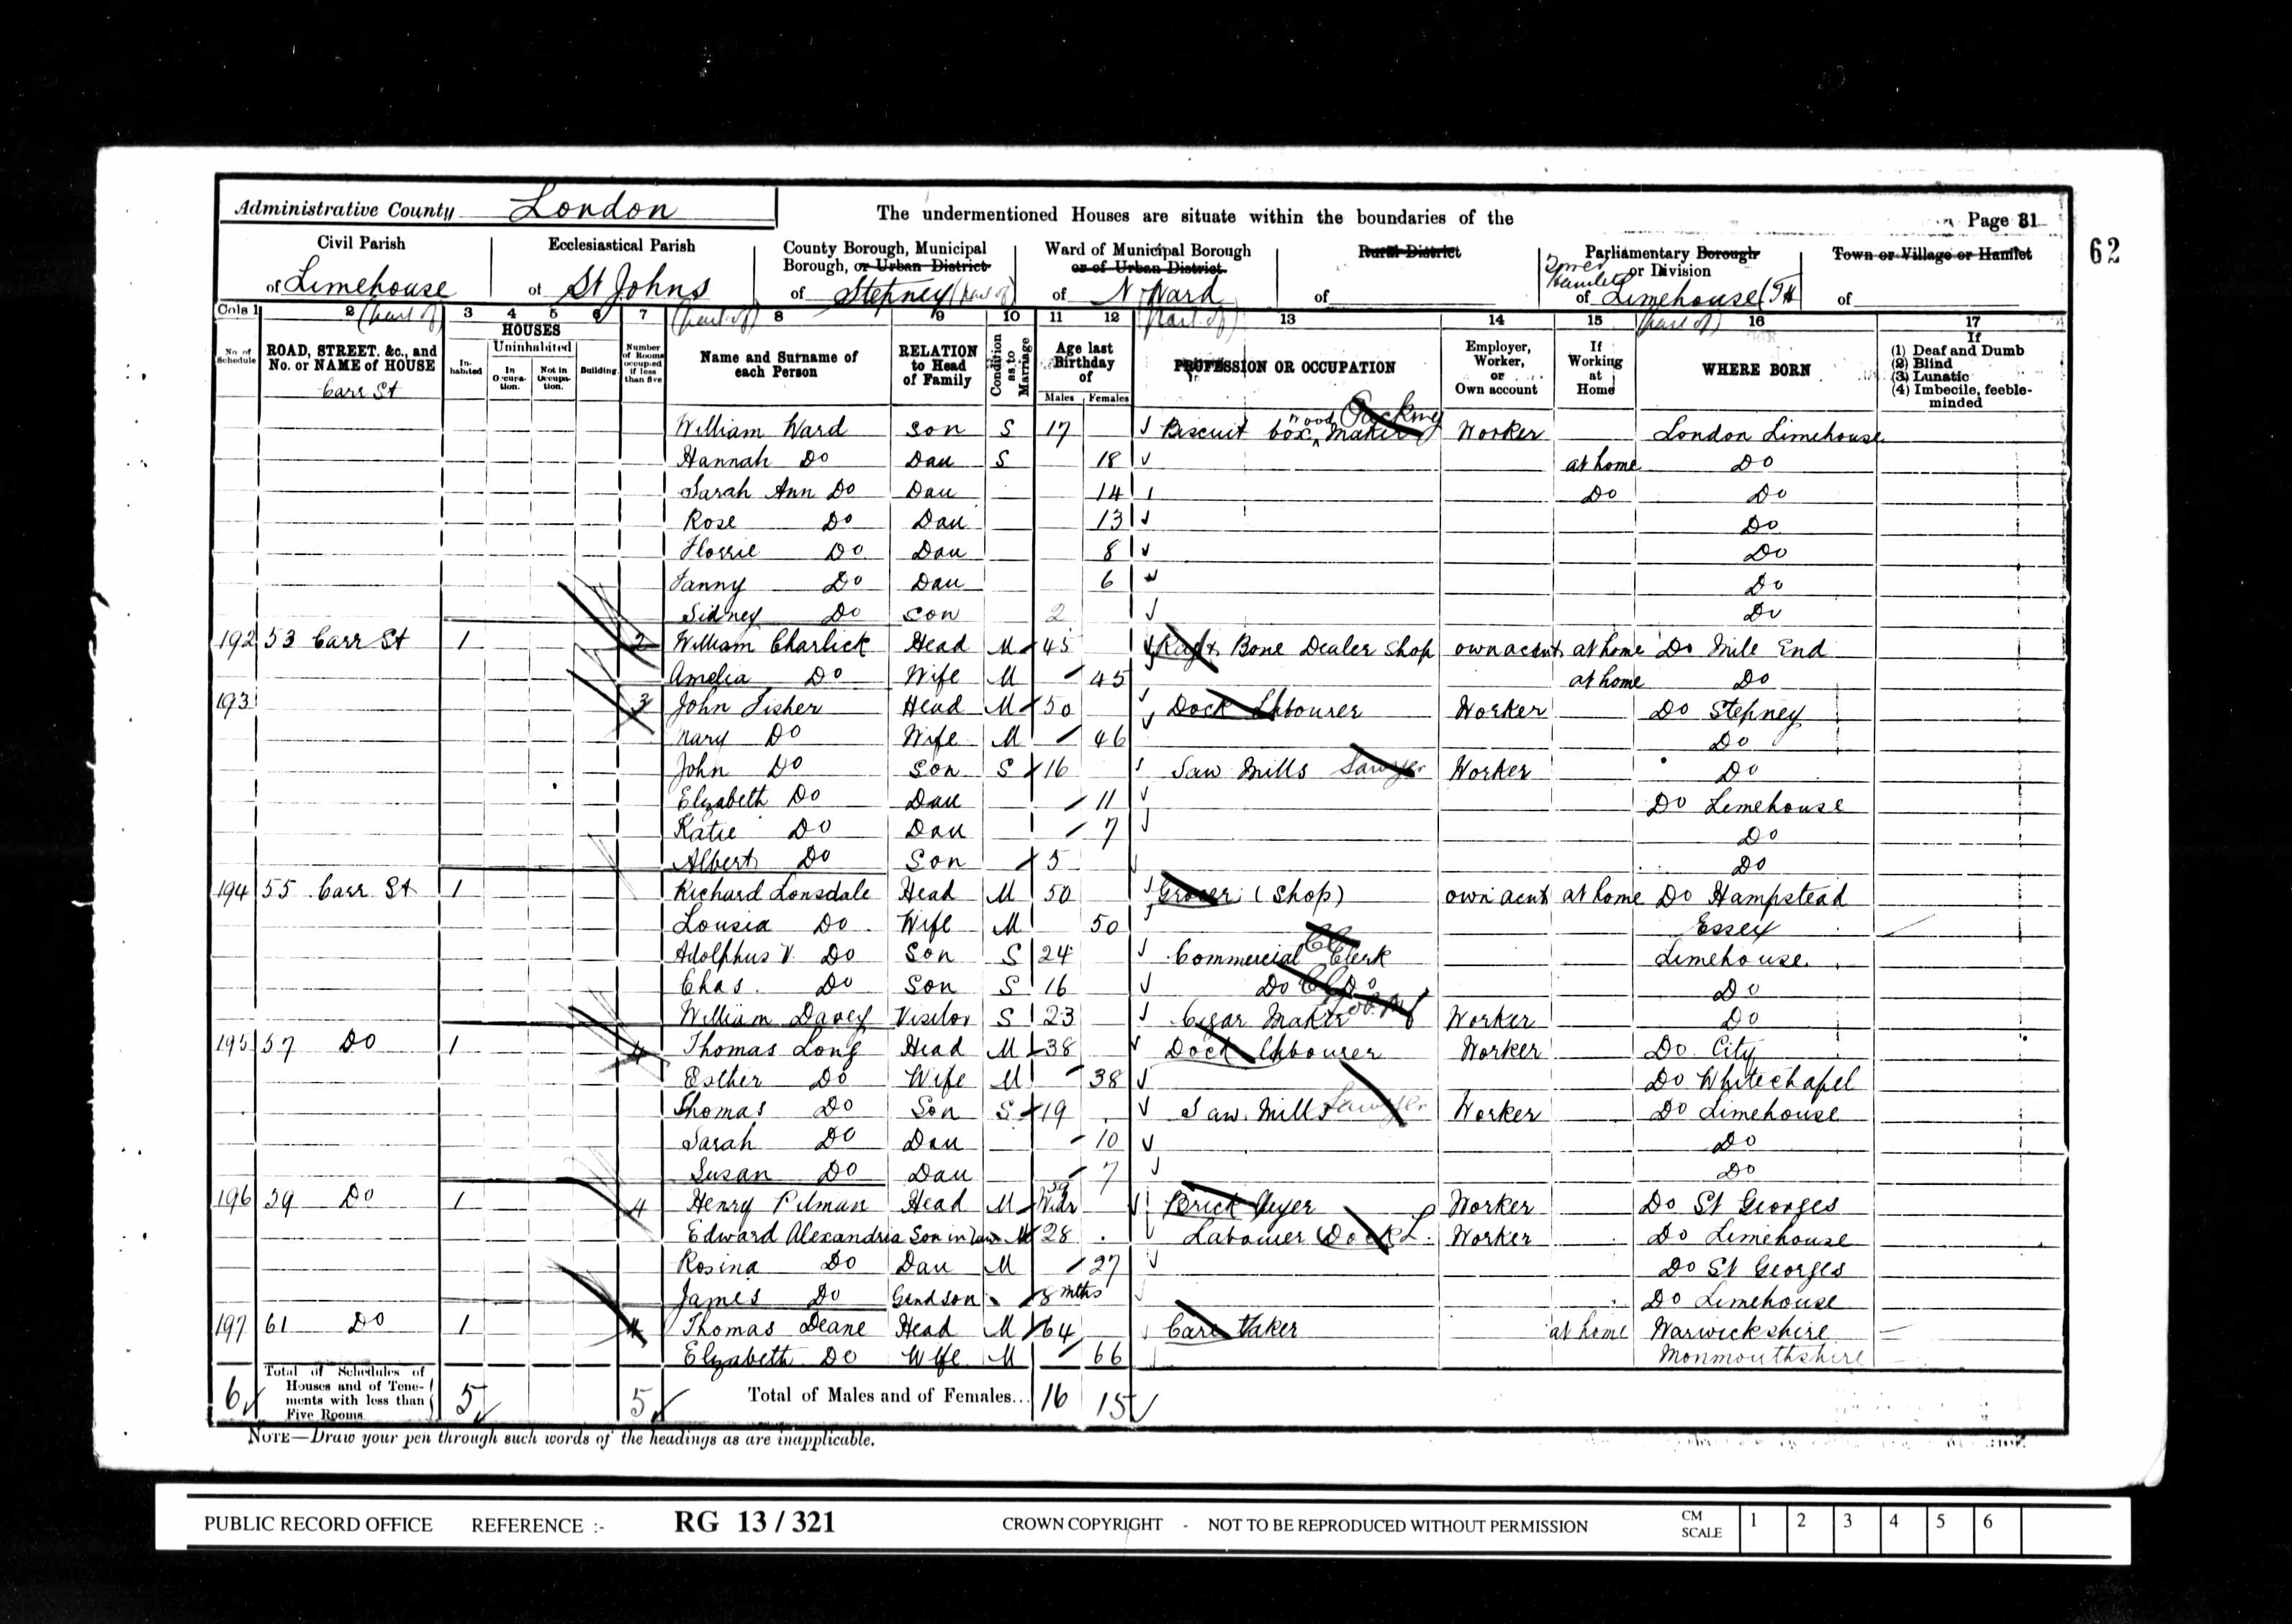 Administrative County London
The undermentioned Houses are situate within the boundaries of the
Page 31
62
Civil Parish of Limehouse
Ecclesiastical Parish of St Johns
County Borough, Municipal Borough, or Urban District of Stepney (part of)
Ward of Municipal Borough or of Urban District of N Ward
Rural District of
Parliamentary Borough or Division of Tower Hamlets Limehouse (TH
Town or Village or Hamlet of
Cols 1 2 (part of) 3 4 5 6 7 (part of) 8 9 10 11 12 (part of) 13 14 15 (part of) 16 17
No. of Schedule
ROAD, STREET, &c., and No. or NAME of HOUSE
Carr St
HOUSES
In-habited
Uninhabited
In Occupa-tion.
Not in Occupa-tion.
Building
Number of Rooms occupied if less than five
Name and Surname of each Person
RELATION to Head of Family
Condition as to Marriage
Age last Birthday of
Males Females
PROFESSION OR OCCUPATION
Employer, Worker, or Own account
If Working at Home
WHERE BORN
If
(1) Deaf and Dumb
(2) Blind
(3) Lunatic
(4) Imbecile, feeble-minded
William Ward Son S 17 Biscuit box wood maker Packing Worker London Limehouse
Hannah Do Dau S 18 at home Do
Sarah Ann Do Dau 14 Do Do
Rose Do Dau 13 Do
Florrie Do Dau 8 Do
Fanny Do Dau 6 Do
Sidney Do Son 2 Do
192 53 Carr St 1 2 William Charlick Head M 45 Rag & Bone Dealer Shop own acnt at home Do Mile End
Amelia Do Wife M 45 at home Do
193 3 John Fisher Head M 50 Dock Labourer Worker Do Stepney
Mary Do Wife M 46 Do
John Do Son S 16 Saw Mills Sawyer Worker Do
Elizabeth Do Dau 11 Do Limehouse
Katie Do Dau 7 Do
Albert Do Son 5 Do
194 55 Carr St 1 Richard Lonsdale Head M 50 Grocer (Shop) own acnt at home Do Hampstead
Lousia Do Wife M 50 Essex
Adolphus V Do Son S 24 Commercial Clerk Limehouse
Chas. Do Son S 16 Do Do Do
William Davey Visitor S 23 Cigar Maker Worker Do
195 57 Do 1 4 Thomas Long Head M 38 Dock Labourer Worker Do City
Esther Do Wife M 38 Do Whitechapel
Thomas Do Son S 19 Saw Mills Sawyer Worker Do Limehouse
Sarah Do Dau 10 Do
Susan Do Dau 7 Do
196 59 Do 1 4 Henry Pilman Head M Widr 59 Brick layer Worker Do St Georges
Edward Alexandria Son in law M 28 Labourer (Dock L. Worker Do Limehouse
Rosina Do Dau M 27 Do St Georges
James Do Grndson 8 mths Do Limehouse
197 61 Do 1 4 Thomas Deane Head M 64 Care taker at home Warwickshire
Elizabeth Do Wife M 66 Monmouthshire
6 Total of Schedules of Houses and of Tene-ments with less than Five Rooms 5 5 Total of Males and of Females... 16 15
NOTE—Draw your pen through such words of the headings as are inapplicable.
PUBLIC RECORD OFFICE REFERENCE :- RG 13 / 321 CROWN COPYRIGHT - NOT TO BE REPRODUCED WITHOUT PERMISSION CM SCALE 1 2 3 4 5 6